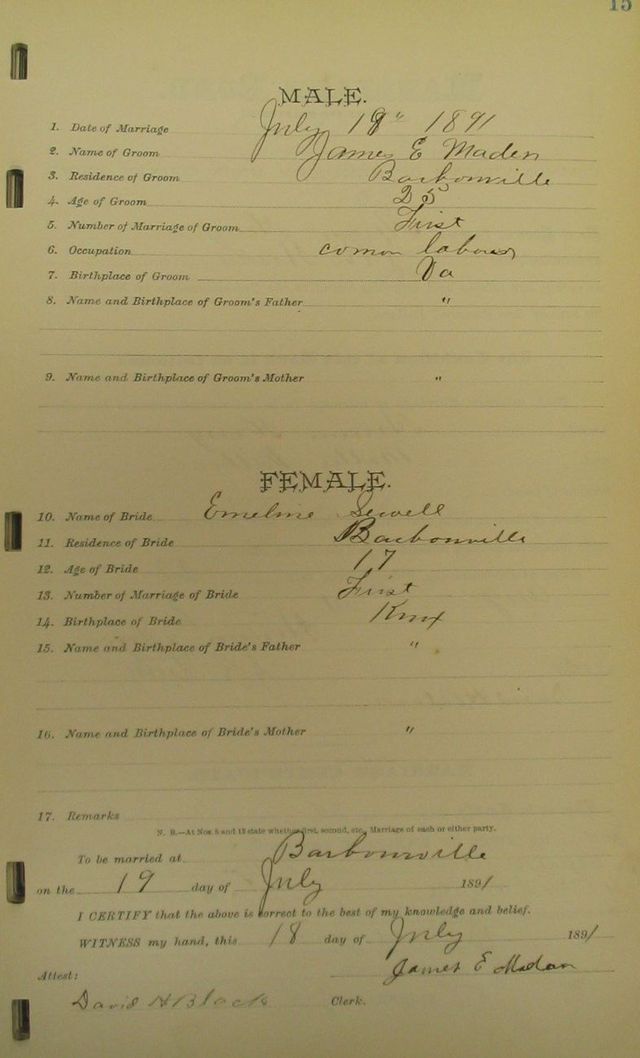 15
MALE.
1. Date of Marriage July 19" 1891
2. Name of Groom James E Maden
3. Residence of Groom Barbonville
4. Age of Groom 25
5. Number of Marriage of Groom First
6. Occupation comon labour
7. Birthplace of Groom Va
8. Name and Birthplace of Groom's Father "
9. Name and Birthplace of Groom's Mother "
FEMALE.
10. Name of Bride Emeline Sewell
11. Residence of Bride Barbonville
12. Age of Bride 17
13. Number of Marriage of Bride First
14. Birthplace of Bride Knox
15. Name and Birthplace of Bride's Father "
16. Name and Birthplace of Bride's Mother "
17. Remarks
N. B.—At Nos. 5 and 13 state whether first, second, etc., Marriage of each or either party.
To be married at Barbonville
on the 19 day of July 1891
I CERTIFY that the above is correct to the best of my knowledge and belief.
WITNESS my hand, this 18 day of July 1891
James E Madan
Attest:
David H Black Clerk.